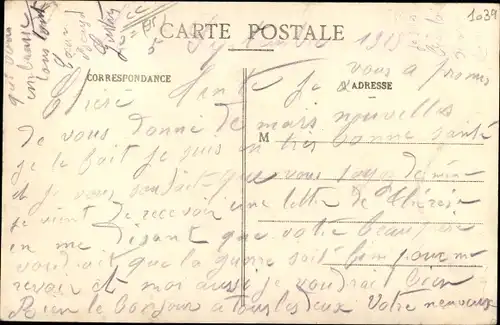 CARTE POSTALE
1039
Septembre 1915
CORRESPONDANCE
ADRESSE
M
Chère Tante Je vous a promis
de vous donné de mais nouvelles
je le fait je suis en très bonne santé
et je vous souhait que vous soyez de même
je vient de recevoir une lettre de Thérèse
en me disant que votre beau frère
voudrait que la guerre soit fini pour me
revoir et moi aussi je voudrait bien
Rien le bonjour a tous les deux Votre neveux
qui vous
embrasse
tous
Gustave